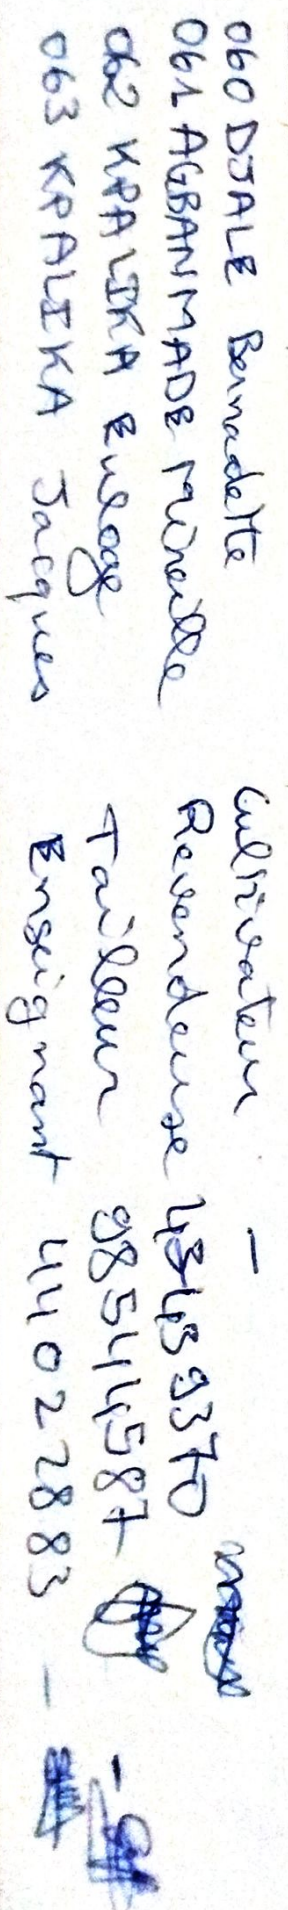 060 DJALE Bernadette Cultivateur —
061 AGBANMADE Mireille Revendeuse 43459370
062 KPALIKA Euloge Tailleur 98544587 —
063 KPALIKA Jacques Enseignant 44022883 —